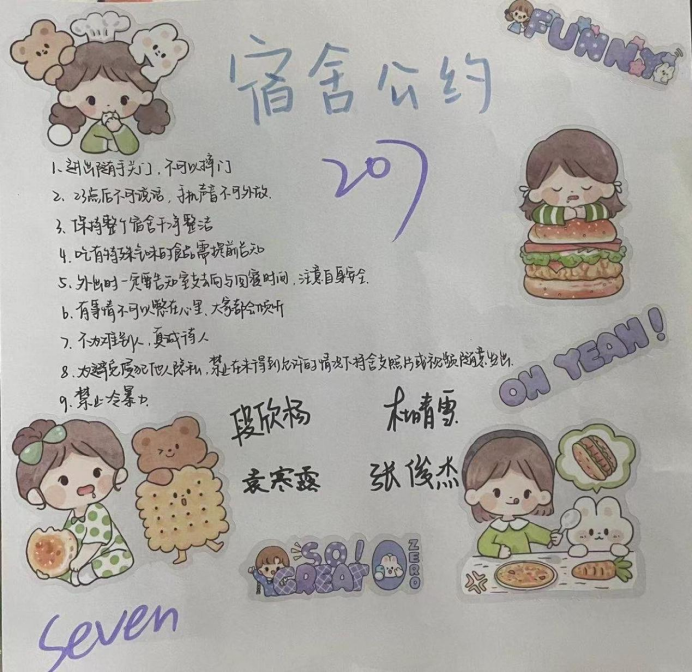 FUNNY
宿舍公约
207
1、进出随手关门，不可以摔门
2、23点后不可说话，手机声音不可外放.
3、保持整个宿舍干净整洁
4、吃有特殊气味的食品需提前告知
5、外出时一定要告知室友去向与回寝时间，注意自身安全.
6、有事情不可以憋在心里，大家都会倾听
7、不为难别人，真诚待人
8、为避免侵犯他人隐私，禁止在未得到允许的情况下将舍友照片或视频随意发出.
9、禁止冷暴力
OH YEAH!
段欣杨 杜晴雪
袁寒露 张俊杰
SO!
GREAT
ZERO
seven